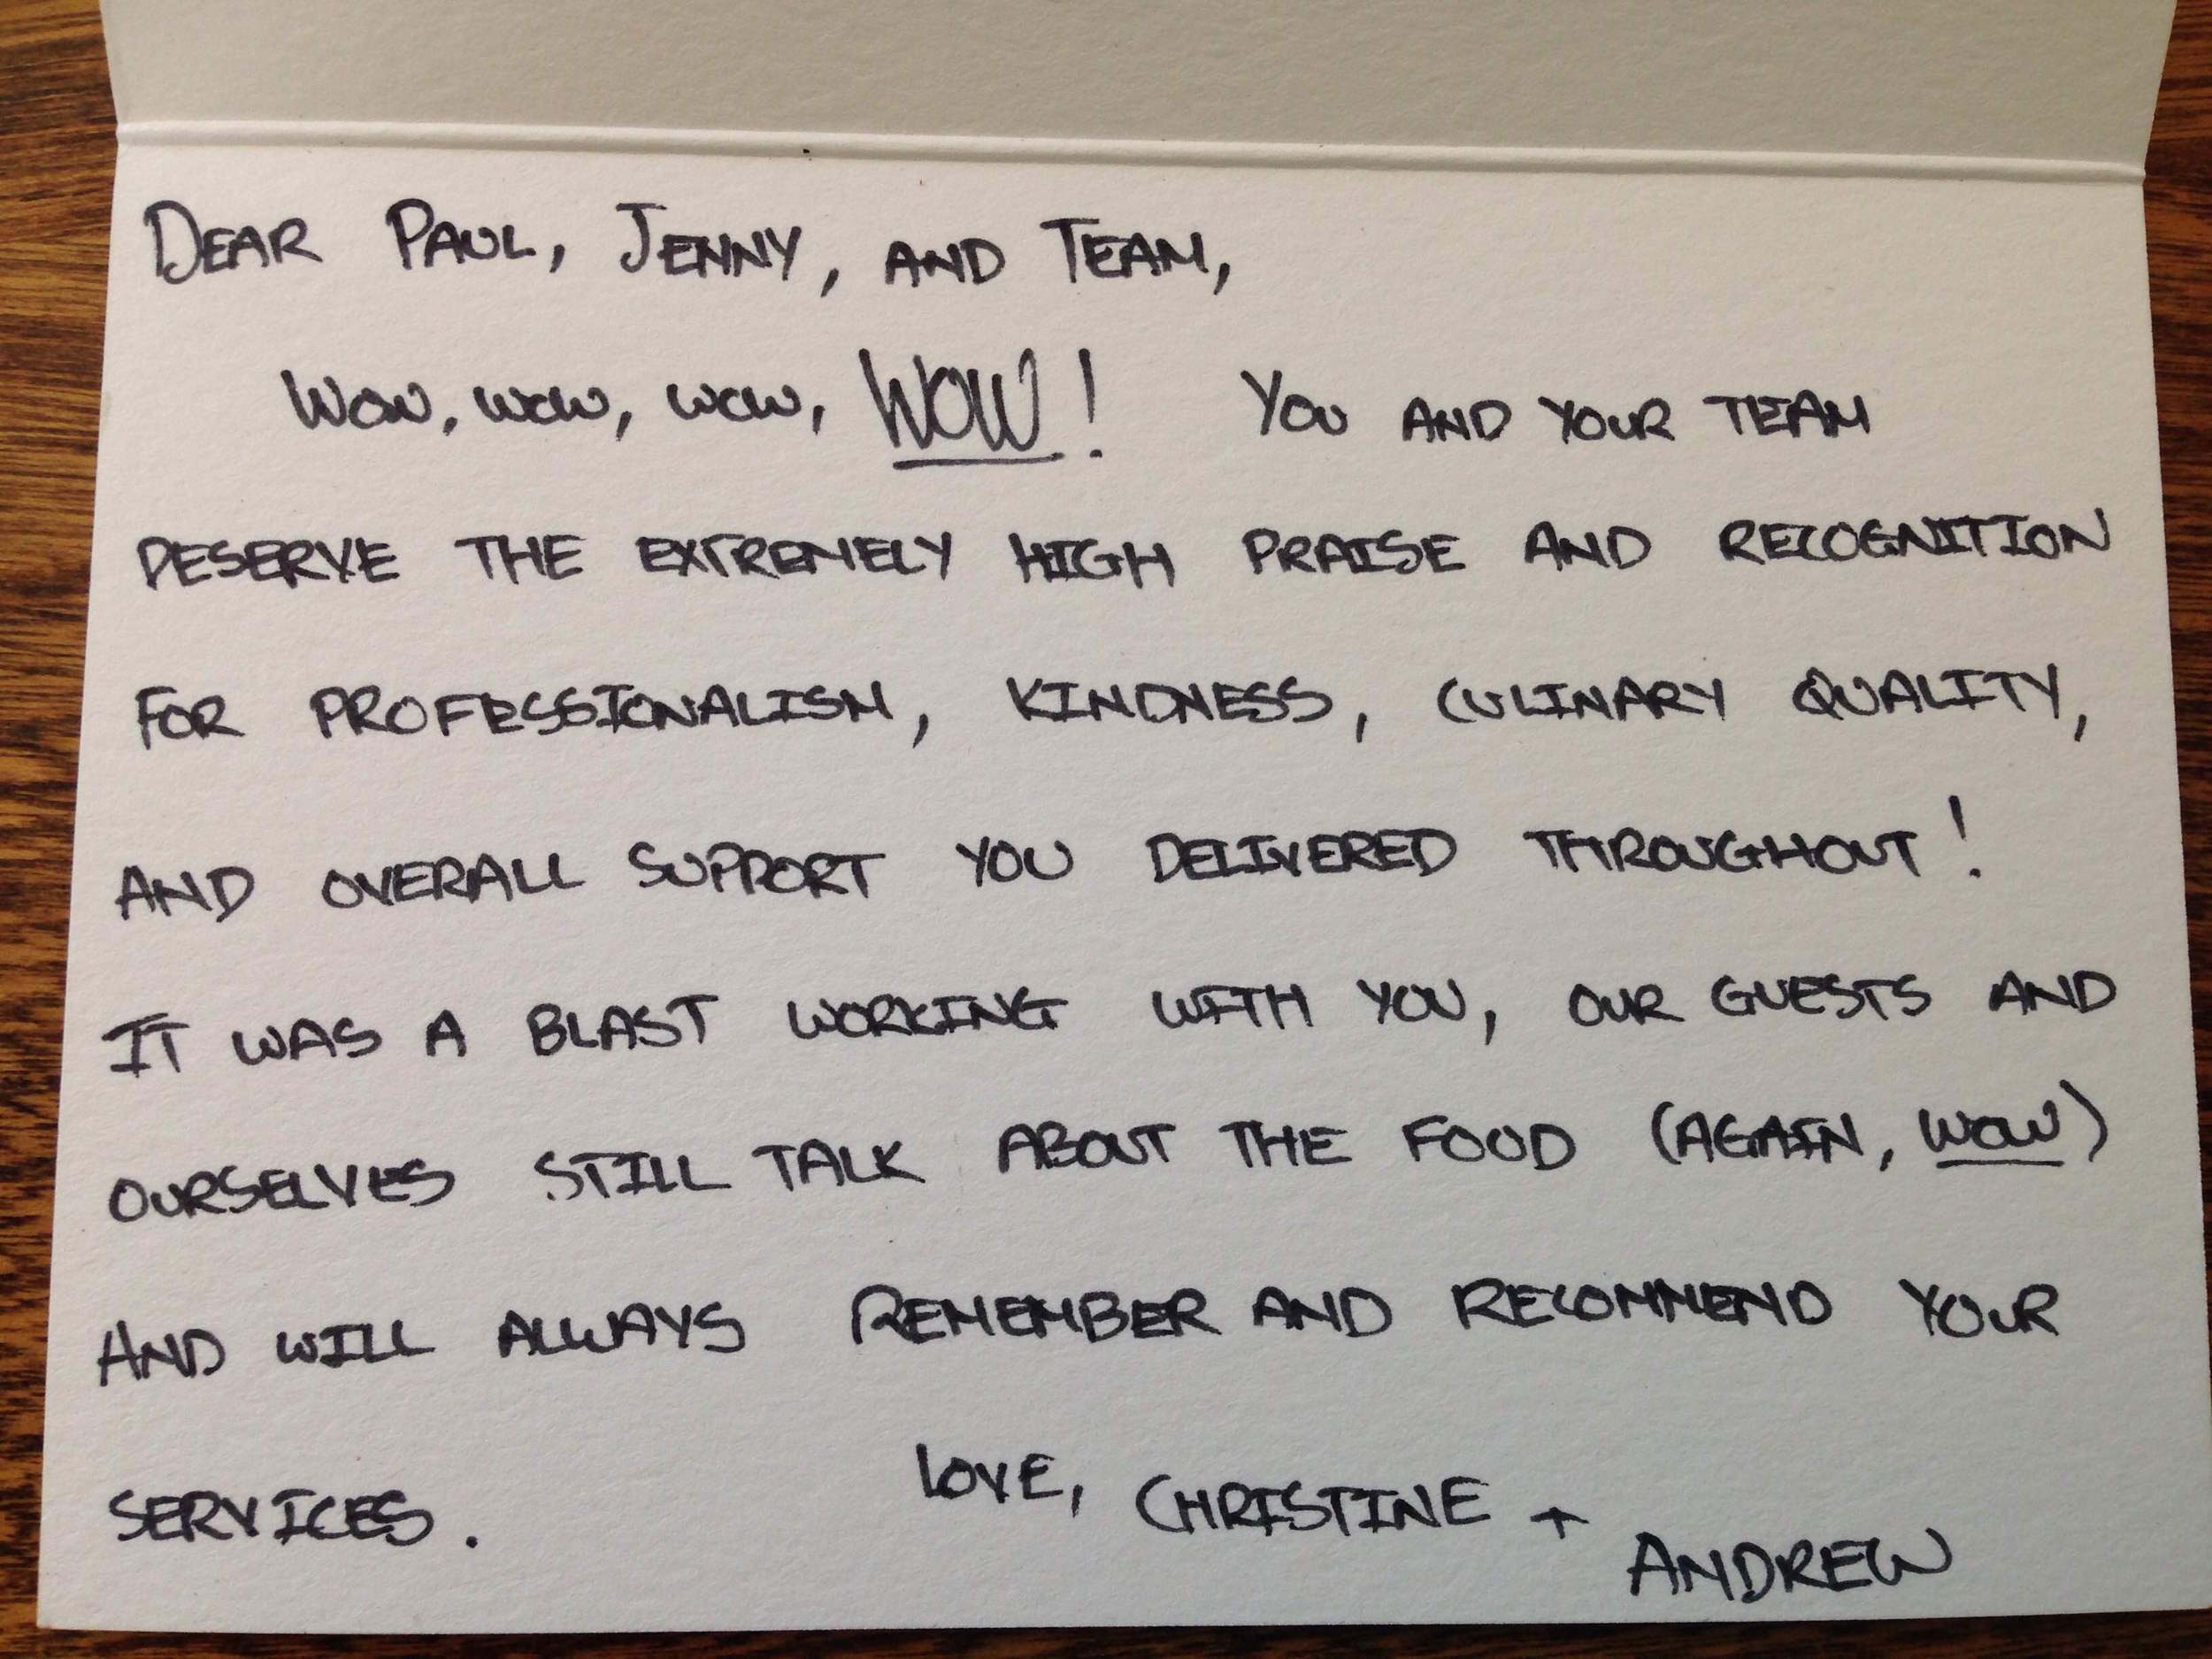 DEAR PAUL, JENNY, AND TEAM,
WOW, WOW, WOW, WOW! YOU AND YOUR TEAM
DESERVE THE EXTREMELY HIGH PRAISE AND RECOGNITION
FOR PROFESSIONALISM, KINDNESS, CULINARY QUALITY,
AND OVERALL SUPPORT YOU DELIVERED THROUGHOUT!
IT WAS A BLAST WORKING WITH YOU, OUR GUESTS AND
OURSELVES STILL TALK ABOUT THE FOOD (AGAIN, WOW)
AND WILL ALWAYS REMEMBER AND RECOMMEND YOUR
SERVICES. LOVE, CHRISTINE +
ANDREW